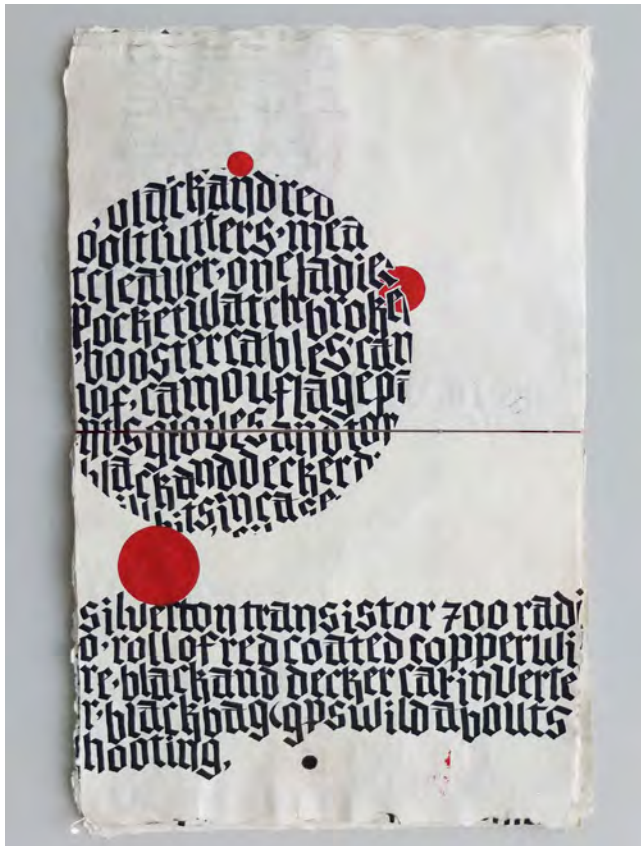 blackandred
boltcutters, mea
tcleaver, oneladies
pocketwatchbroke
, boostercables, can
lof, camouflagepa
ntsglovesandton
blackanddeckerd
bitsincase
silvertontransistor 700 radi
o, rollofred coated copperwi
re, blackand decker carinverte
r, blackbag(gpswildabouts
hooting,